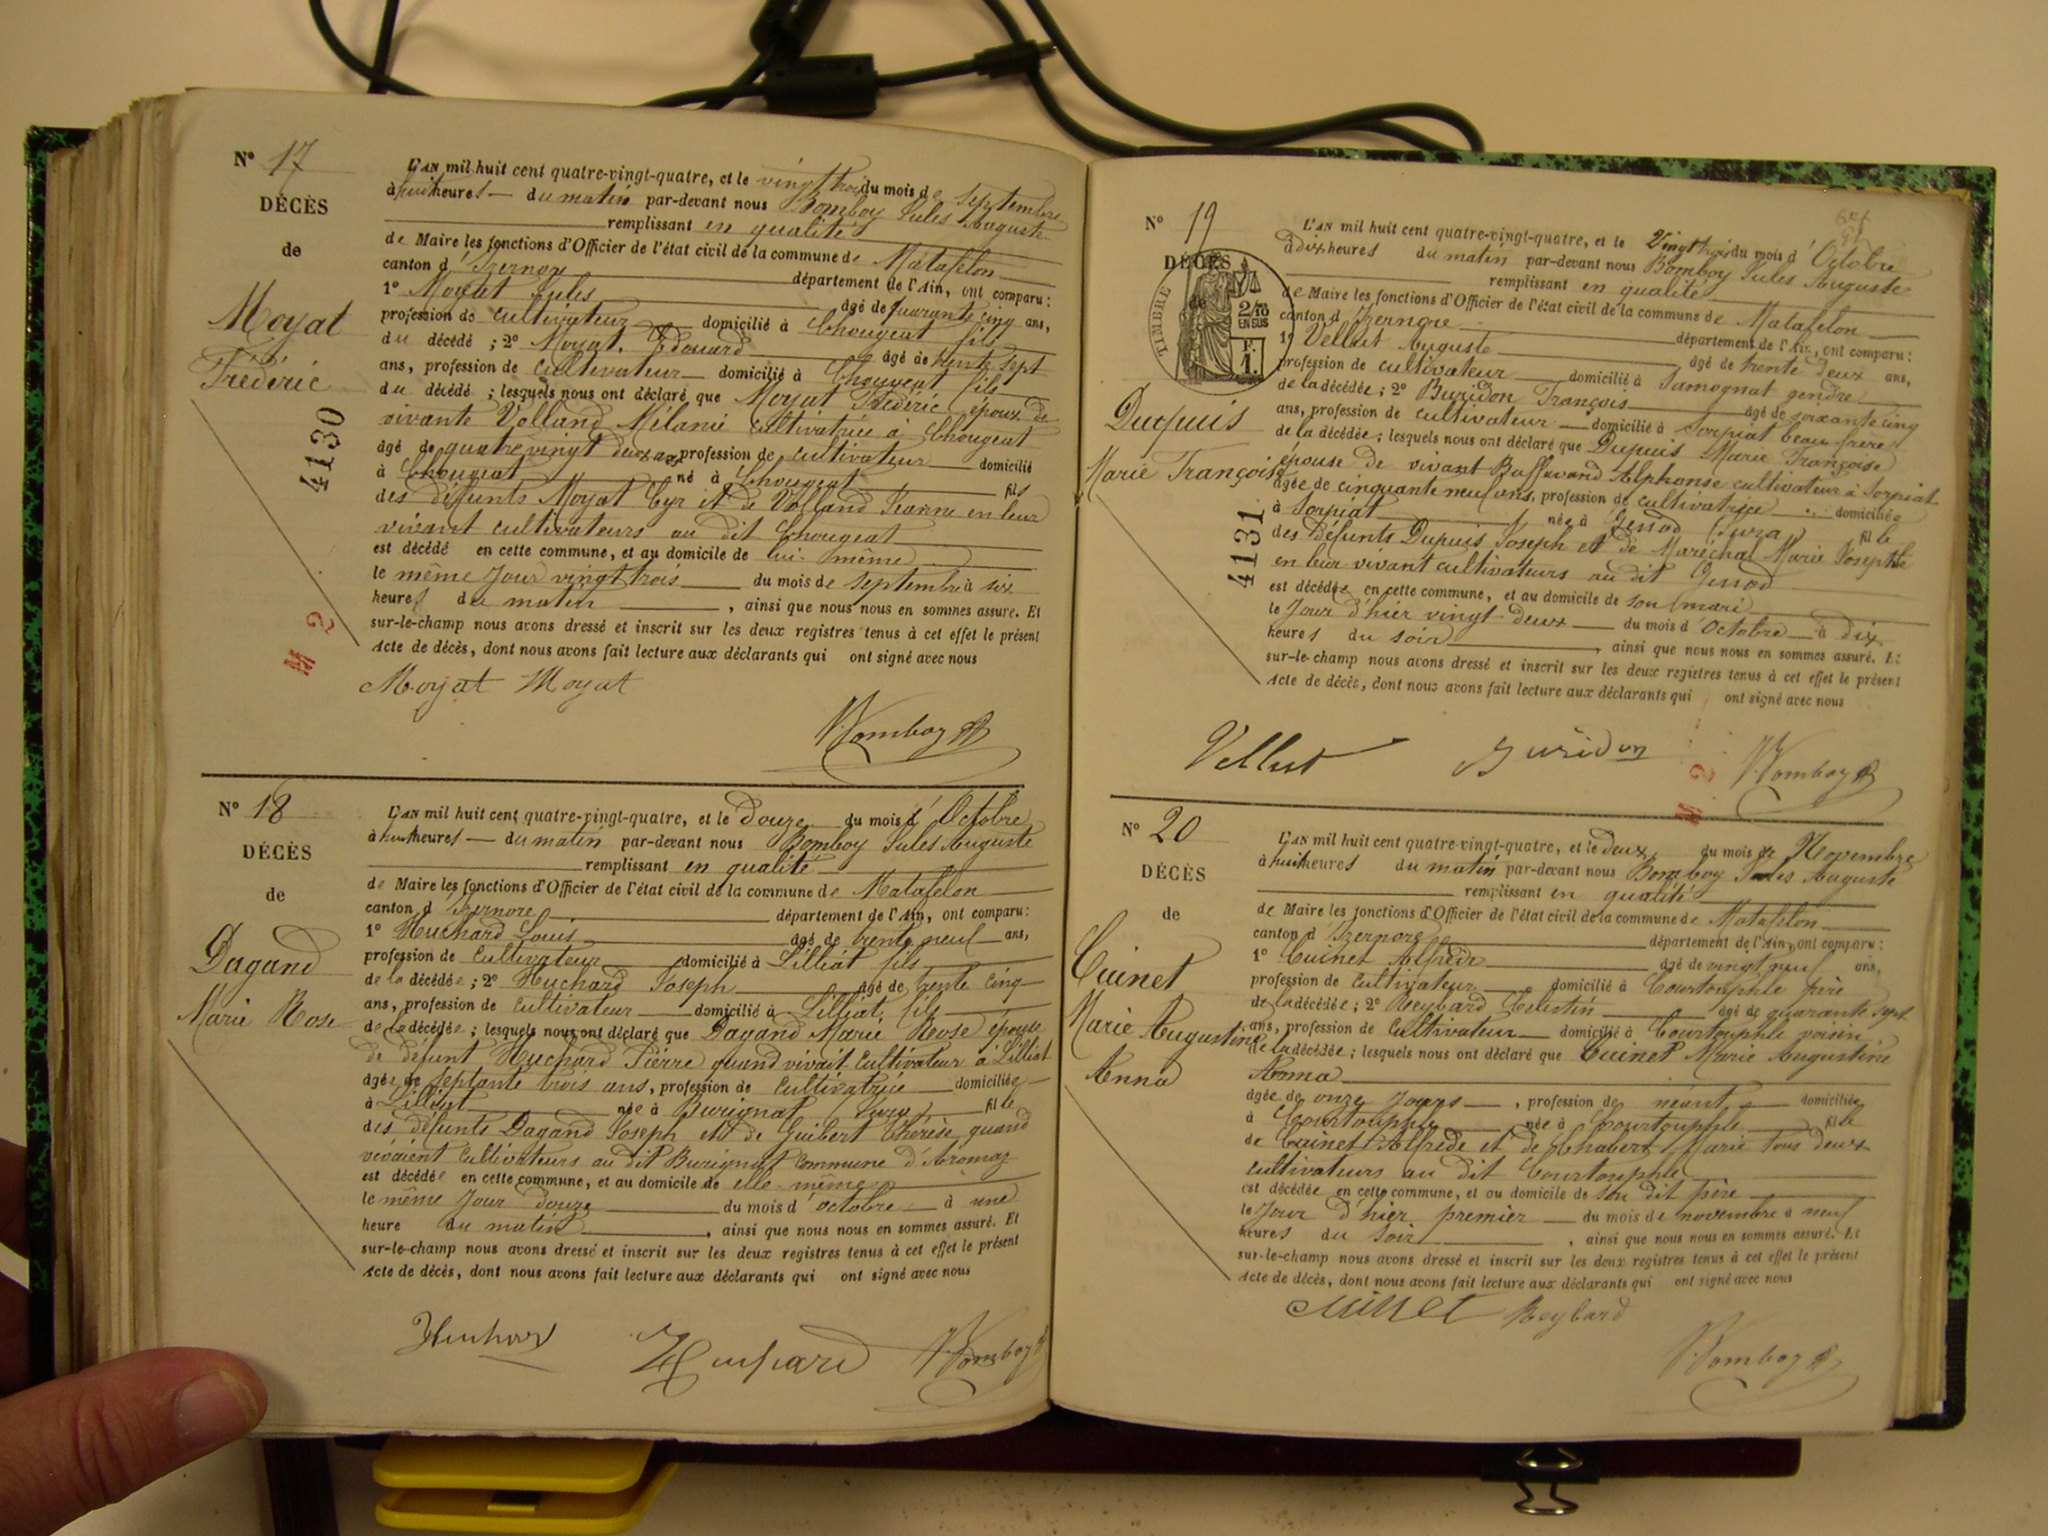 N° 17
DÉCÈS
de
Moyat
Frédéric
4130
M 2
L'AN mil huit cent quatre-vingt-quatre, et le vingt trois du mois de septembre
à huit heures du matin par-devant nous Bomboy Jules Auguste
remplissant en qualité
de Maire les fonctions d'Officier de l'état civil de la commune de Matafelon
canton d'Izernore département de l'Ain, ont comparu :
1° Moyat Jules âgé de quarante cinq ans,
profession de cultivateur domicilié à Chougeat fils
du décédé ; 2° Moyat Edouard âgé de trente sept
ans, profession de cultivateur domicilié à Chougeat fils
du décédé ; lesquels nous ont déclaré que Moyat Frédéric époux de
vivante Volland Mélanie cultivatrice à Chougeat
âgé de quatre vingt deux ans profession de cultivateur domicilié
à Chougeat né à Chougeat fils
des défunts Moyat Cyr et de Volland Jeanne en leur
vivant cultivateurs au dit Chougeat
est décédé en cette commune, et au domicile de lui-même
le même jour vingt trois du mois de septembre à six
heures du matin, ainsi que nous nous en sommes assuré. Et
sur-le-champ nous avons dressé et inscrit sur les deux registres tenus à cet effet le présent
acte de décès, dont nous avons fait lecture aux déclarants qui ont signé avec nous
Moyat Moyat
Bomboy
N° 18
DÉCÈS
de
Dagand
Marie Rose
L'AN mil huit cent quatre-vingt-quatre, et le douze du mois d'Octobre
à huit heures du matin par-devant nous Bomboy Jules Auguste
remplissant en qualité
de Maire les fonctions d'Officier de l'état civil de la commune de Matafelon
canton d'Izernore département de l'Ain, ont comparu :
1° Huchard Louis âgé de trente neuf ans,
profession de cultivateur domicilié à Lilliat fils
de la décédée ; 2° Huchard Joseph âgé de trente cinq
ans, profession de cultivateur domicilié à Lilliat, fils
de la décédée ; lesquels nous ont déclaré que Dagand Marie Rose épouse
de défunt Huchard Pierre quand vivait cultivateur à Lilliat
âgée de septante trois ans, profession de cultivatrice domiciliée
à Lilliat née à Burignat (Jura) fille
des défunts Dagand Joseph et de Guibert Thérèse quand
vivaient cultivateurs au dit Burignat commune d'Aromas
est décédée en cette commune, et au domicile de elle-même
le même jour douze du mois d'octobre à une
heure du matin, ainsi que nous nous en sommes assuré. Et
sur-le-champ nous avons dressé et inscrit sur les deux registres tenus à cet effet le présent
acte de décès, dont nous avons fait lecture aux déclarants qui ont signé avec nous
Huchard Huchard Bomboy
N° 19
DÉCÈS
TIMBRE
2/10
EN SUS
F.
1.
Dupuis
Marie Françoise
4131
M 2
L'AN mil huit cent quatre-vingt-quatre, et le vingt trois du mois d'Octobre
à dix heures du matin par-devant nous Bomboy Jules Auguste
remplissant en qualité
de Maire les fonctions d'Officier de l'état civil de la commune de Matafelon
canton d'Izernore département de l'Ain, ont comparu :
1° Vellut Auguste âgé de trente deux ans,
profession de cultivateur domicilié à Samognat gendre
de la décédée ; 2° Buridon François âgé de soixante cinq
ans, profession de cultivateur domicilié à Sorpiat beau-frère
de la décédée ; lesquels nous ont déclaré que Dupuis Marie Françoise
épouse de vivant Buffavand Alphonse cultivateur à Sorpiat
âgée de cinquante neuf ans, profession de cultivatrice domiciliée
à Sorpiat née à Genod (Jura) fille
des défunts Dupuis Joseph et de Maréchal Marie Josephte
en leur vivant cultivateurs au dit Genod
est décédée en cette commune, et au domicile de son mari
le jour d'hier vingt deux du mois d'Octobre à dix
heures du soir, ainsi que nous nous en sommes assuré. Et
sur-le-champ nous avons dressé et inscrit sur les deux registres tenus à cet effet le présent
acte de décès, dont nous avons fait lecture aux déclarants qui ont signé avec nous
Vellut Buridon Bomboy
N° 20
DÉCÈS
de
Cuinet
Marie Augustine
Anna
L'AN mil huit cent quatre-vingt-quatre, et le deux du mois de Novembre
à huit heures du matin par-devant nous Bomboy Jules Auguste
remplissant en qualité
de Maire les fonctions d'Officier de l'état civil de la commune de Matafelon
canton d'Izernore département de l'Ain, ont comparu :
1° Cuinet Alfrède âgé de vingt neuf ans,
profession de cultivateur domicilié à Courtouphle père
de la décédée ; 2° Reybard Célestin âgé de quarante sept
ans, profession de cultivateur domicilié à Courtouphle voisin
de la décédée ; lesquels nous ont déclaré que Cuinet Marie Augustine
Anna
âgée de onze jours, profession de néant domiciliée
à Courtouphle née à Courtouphle fille
de Cuinet Alfrède et de Chabert Marie tous deux
cultivateurs au dit Courtouphle
est décédée en cette commune, et au domicile de son dit père
le jour d'hier premier du mois de novembre à neuf
heures du soir, ainsi que nous nous en sommes assuré. Et
sur-le-champ nous avons dressé et inscrit sur les deux registres tenus à cet effet le présent
acte de décès, dont nous avons fait lecture aux déclarants qui ont signé avec nous
Cuinet Reybard
Bomboy